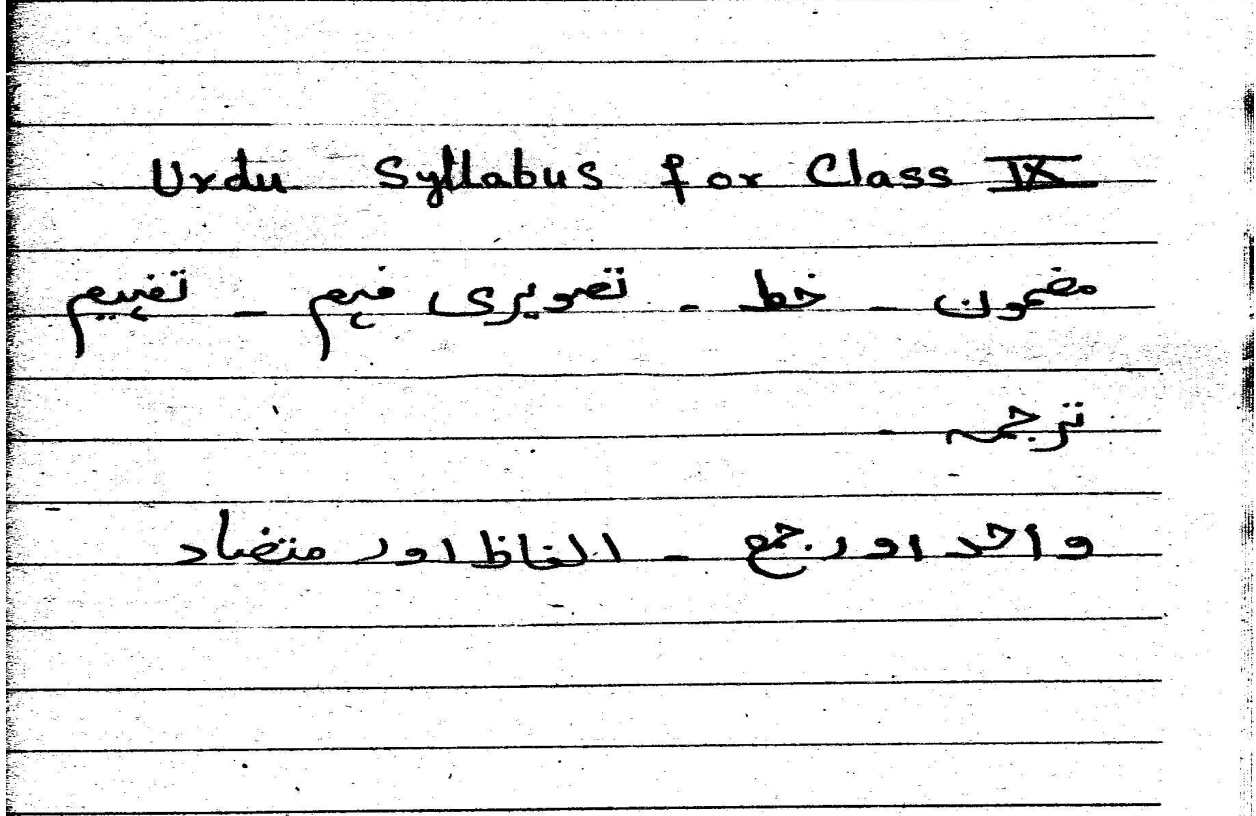 Urdu Syllabus for Class IX
مضمون - خط - تصویری فہم - تفہیم
ترجمہ -
واحد اور جمع - الفاظ اور متضاد